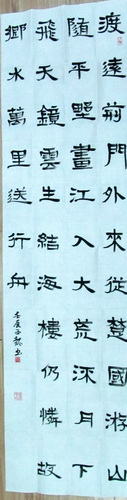 渡遠荊門外來從楚國游山
隨平野盡江入大荒流月下
飛天鏡雲生結海樓仍憐故
鄉水萬里送行舟